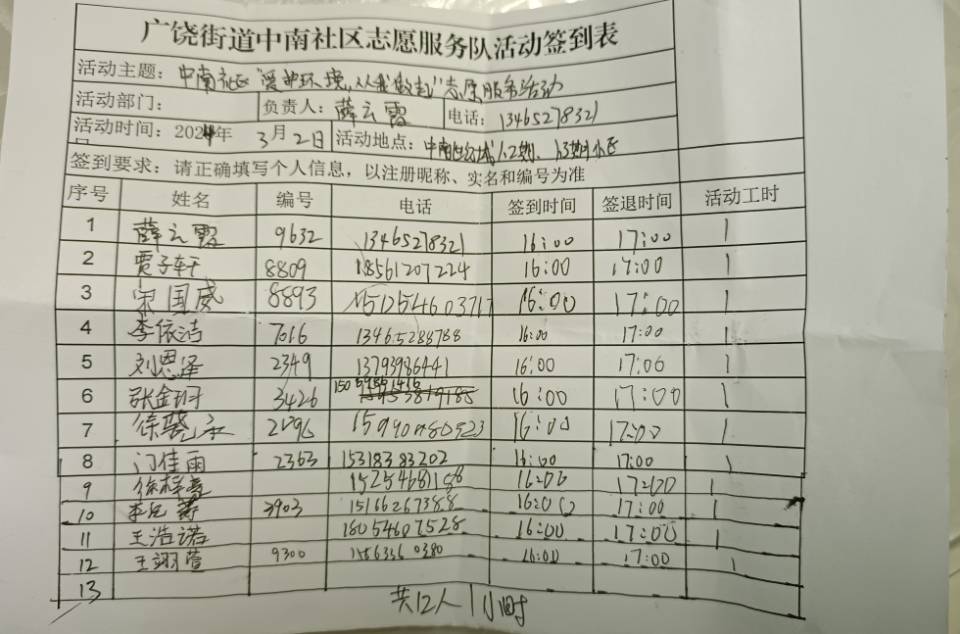 广饶街道中南社区志愿服务队活动签到表
活动主题：中南社区"爱护环境，从我做起"志愿服务活动
活动部门： 负责人：薛云霞 电话：13465278321
活动时间：2024年 3月2日 活动地点：中南
签到要求：请正确填写个人信息，以注册昵称、实名和编号为准
序号 姓名 编号 电话 签到时间 签退时间 活动工时
1 薛云霞 9632 13465278321 16:00 17:00 1
2 贾子轩 8809 18561207224 16:00 17:00 1
3 宋国威 8893 16:00 17:00 1
4 李依洁 7016 13465288788 16:00 17:00 1
5 刘恩泽 2349 13793986441 16:00 17:00 1
6 张金 3426 16:00 17:00 1
7 徐 16:00 17:00 1
8 门佳雨 2363 15318383202 16:00 17:00 1
9 徐梓 16:00 17:00 1
10 李 3903 15166267388 16:00 17:00 1
11 王浩诺 18054607528 16:00 17:00 1
12 王翊萱 9300 16:00 17:00 1
13
共12人 1小时